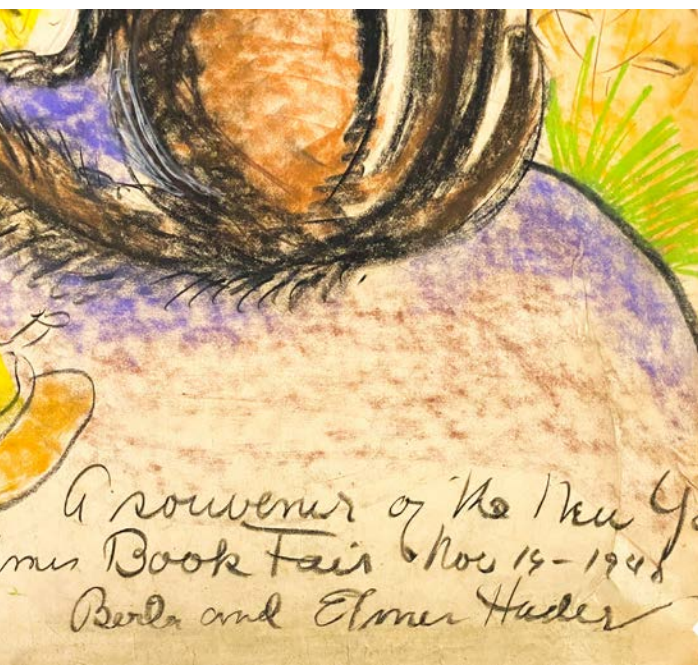 A souvenir of the New Yo
imes Book Fair. Nov 14-1948
Berta and Elmer Hader